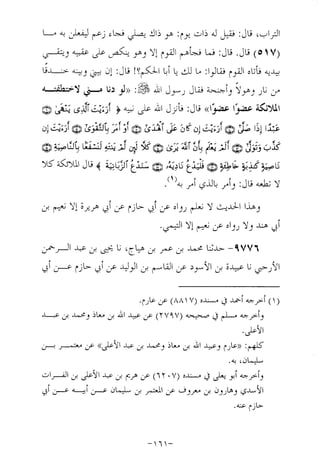 التراب، قال: فقيل له ذات يوم: هو ذاك يصلي فجاء رجز به ليفعل به ما
(٥١٧) قال. قال: فما فجأهم اليوم إلا وهو ينكص على عقبيه ويتقي
بيديه فأتاه اليوم فقالوا: ما لك يا أبا الحكم؟! قال: إن بيني وبينه خندقًا
من نار وهولاً وأجنحة فقال رسول الله ﷺ: «لو دنا مني لاختطفته
الملائكة عضوا عضوا» قال: فأنزل الله على نبيه ﴿أَرَأَيْتَ الَّذِي يَنْهَى
عَبْدًا إِذَا صَلَّى أَرَأَيْتَ إِن كَانَ عَلَى الْهُدَى أَوْ أَمَرَ بِالتَّقْوَى أَرَأَيْتَ إِن
كَذَّبَ وَتَوَلَّى أَلَمْ يَعْلَم بِأَنَّ اللَّهَ يَرَى كَلَّا لَئِن لَّمْ يَنتَهِ لَنَسْفَعًا بِالنَّاصِيَةِ
نَاصِيَةٍ كَاذِبَةٍ خَاطِئَةٍ فَلْيَدْعُ نَادِيَهُ سَنَدْعُ الزَّبَانِيَةَ﴾ قال الملائكة كلا
لا تطعه قال: وأمر بما أمر به السجود في آخرها(١).
وهذا الحديث لا نعلم رواه عن أبي حازم عن أبي هريرة إلا نعيم بن
أبي هند ولا رواه عن نعيم إلا التيمي.
٩٧٧٦- حدثنا محمد بن عمر بن هياج، نا يحيى بن عبد الرحمن
الأرحبي نا عبيدة بن الأسود عن القاسم بن الوليد عن أبي حازم عن أبي
(١) أخرجه أحمد في مسنده (٨٨١٧) عن عارم.
وأخرجه مسلم في صحيحه (٢٧٩٧) عن عبيد الله بن معاذ ومحمد بن عبد
الأعلى.
كلهم: «عارم وعبيد الله بن معاذ ومحمد بن عبد الأعلى» عن معتمر بن
سليمان، به.
وأخرجه أبو يعلى في مسنده (٦٢٠٧) عن هريم بن عبد الأعلى بن الفرات
الأسدي وهارون بن معروف عن المعتمر بن سليمان عن أبيه عن أبي
حازم عنه.
-١٦١-